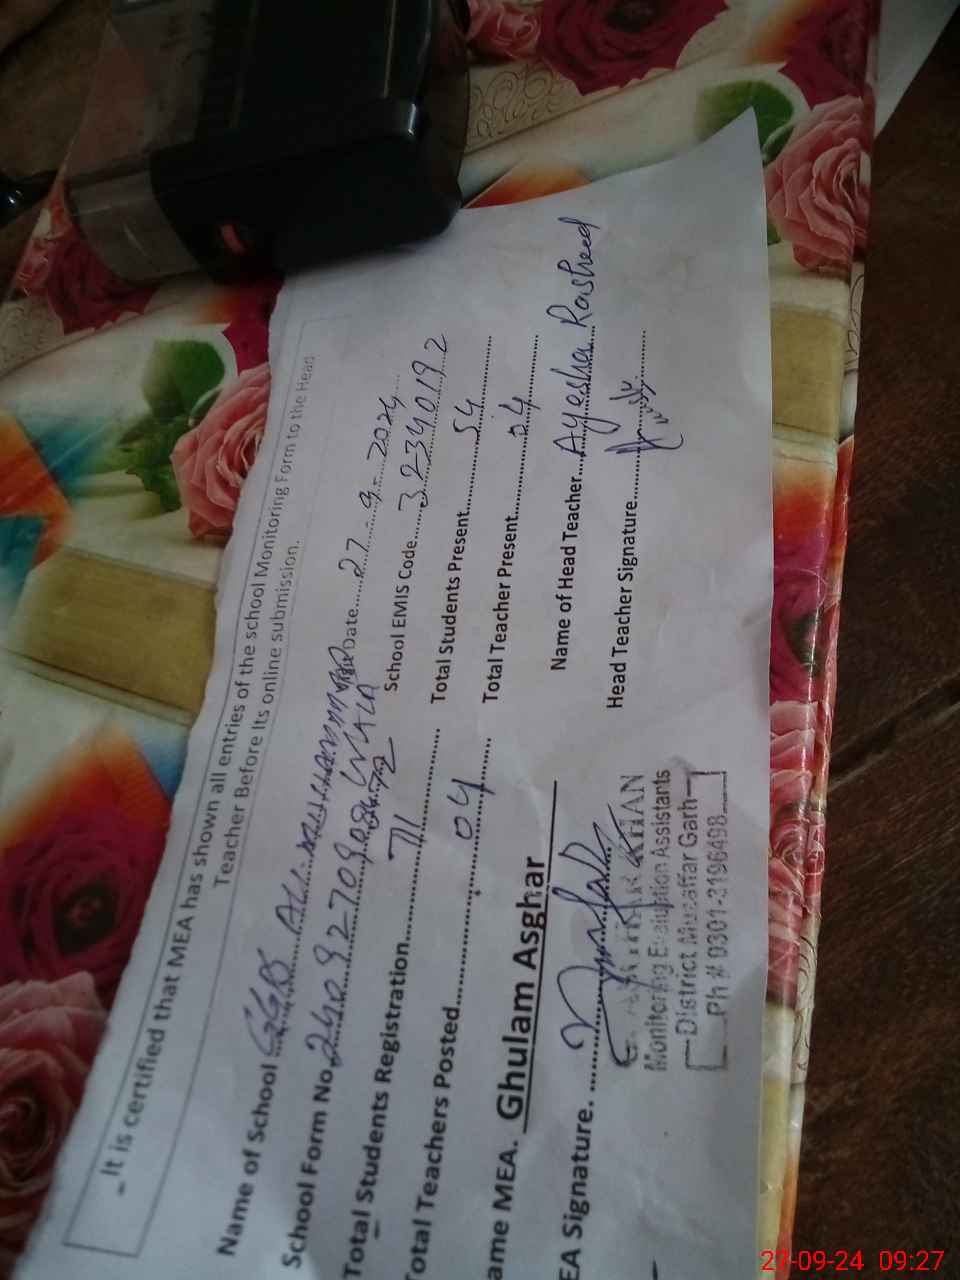 It is certified that MEA has shown all entries of the school Monitoring Form to the Head
Teacher Before Its online submission.
Name of School GGPS ALI Date 27-9-2024
School Form No School EMIS Code 32340192
Total Students Registration 71 Total Students Present 54
Total Teachers Posted 04 Total Teacher Present 04
ame MEA. Ghulam Asghar Name of Head Teacher Ayesha Rasheed
EA Signature. Head Teacher Signature
KHAN
Monitoring Evaluation Assistants
District Muzaffar Garh
Ph # 0301-3196498
27-09-24 09:27